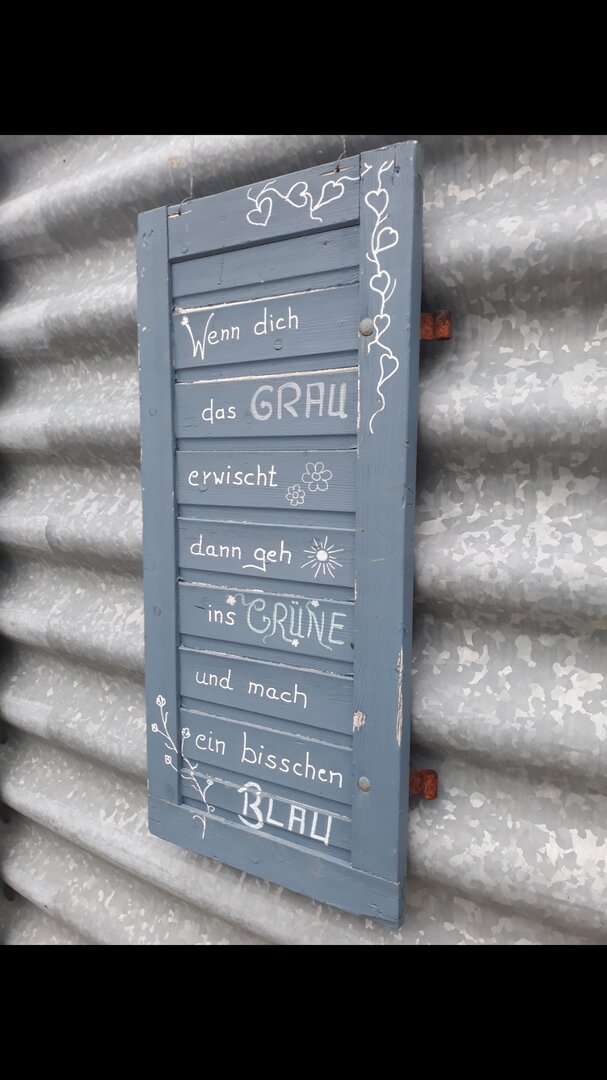 Wenn dich
das GRAU
erwischt
dann geh
ins GRÜNE
und mach
ein bisschen
BLAU